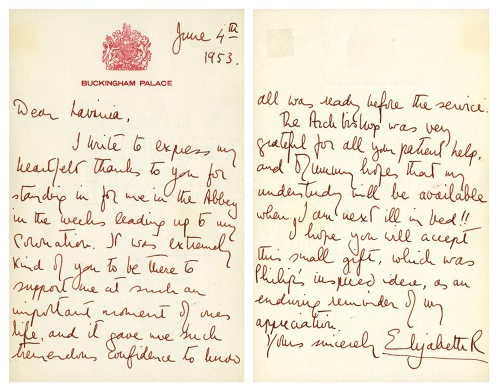 June 4th
1953.
BUCKINGHAM PALACE
Dear Lavinia,
I write to express my
heartfelt thanks to you for
standing in for me in the Abbey
in the weeks leading up to my
Coronation. It was extremely
kind of you to be there to
support me at such an
important moment of ones
life, and it gave me such
tremendous confidence to know
all was ready before the service.
The Archbishop was very
grateful for all your patient help,
and Mummy hopes that my
understudy will be available
when I am next ill in bed!!
I hope you will accept
this small gift, which was
Philip's inspired idea, as an
enduring reminder of my
appreciation.
Yours sincerely Elizabeth R